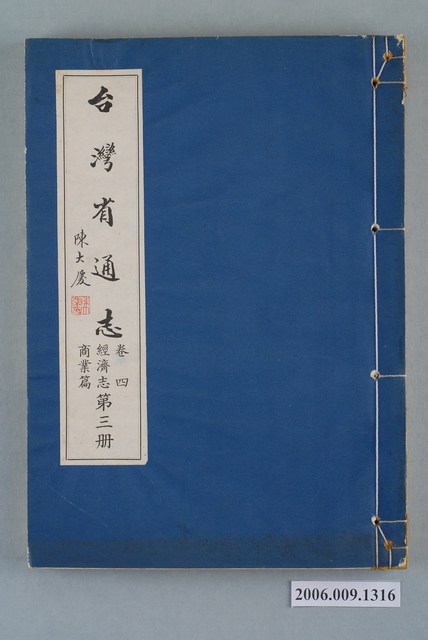 台灣省通志
卷四
經濟志第三册
商業篇
陳大慶
2006.009.1316